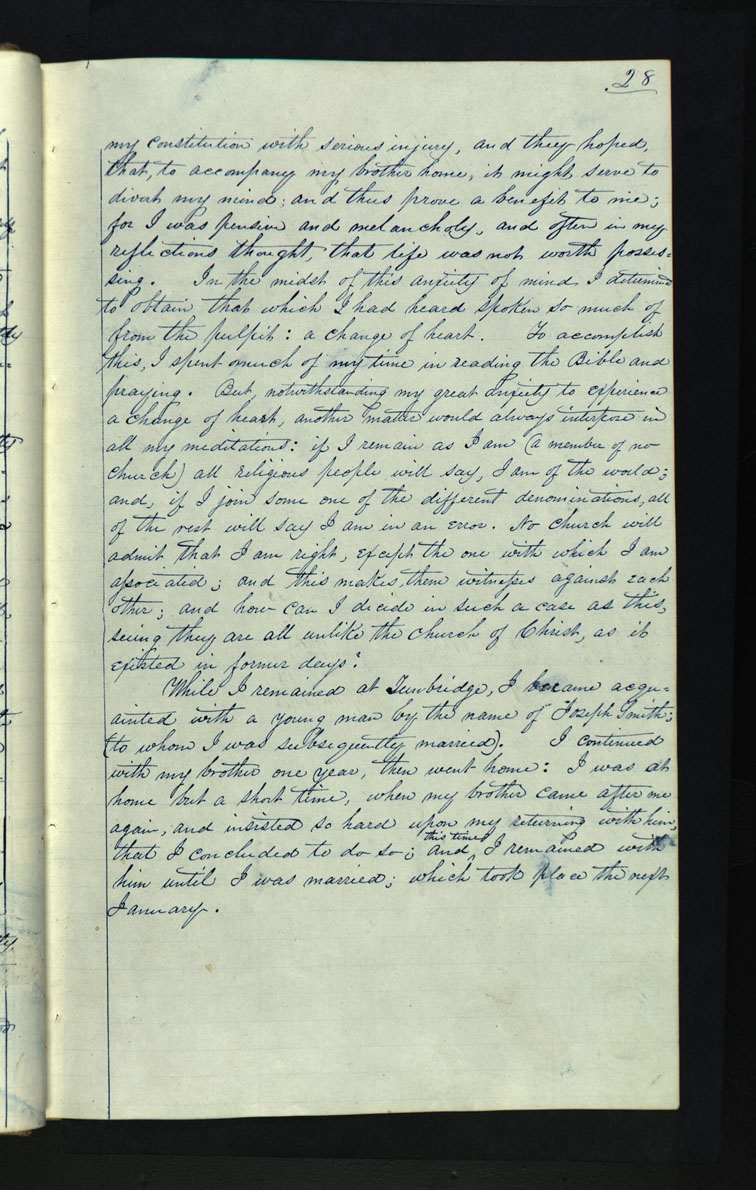 28
my constitution with serious injury, and they hoped,
that, to accompany my brother home, it might serve to
divert my mind; and thus prove a benefit to me;
for I was pensive and melancholy, and often in my
reflections thought, that life was not worth posses=
sing. In the midst of this anxiety of mind I determined
to obtain that which I had heard spoken so much of
from the pulpit: a change of heart. To accomplish
this, I spent much of my time in reading the Bible and
praying. But, notwithstanding my great anxiety to experience
a change of heart, another matter would always interfere in
all my meditations: if I remain as I am (a member of no
church) all religious people will say, I am of the world;
and, if I join some one of the different denominations, all
of the rest will say I am in an error. No church will
admit that I am right, except the one with which I am
associated; and this makes them witnesses against each
other; and how can I decide in such a case as this,
seeing they are all unlike the church of Christ, as it
existed in former days?
While I remained at Tunbridge, I became acqu=
ainted with a young man by the name of Joseph Smith;
(to whom I was subsequently married). I continued
with my brother one year, then went home: I was at
home but a short time, when my brother came after me
again, and insisted so hard upon my returning with him,
that I concluded to do so; and this time, I remained with
him until I was married; which took place the next
January.